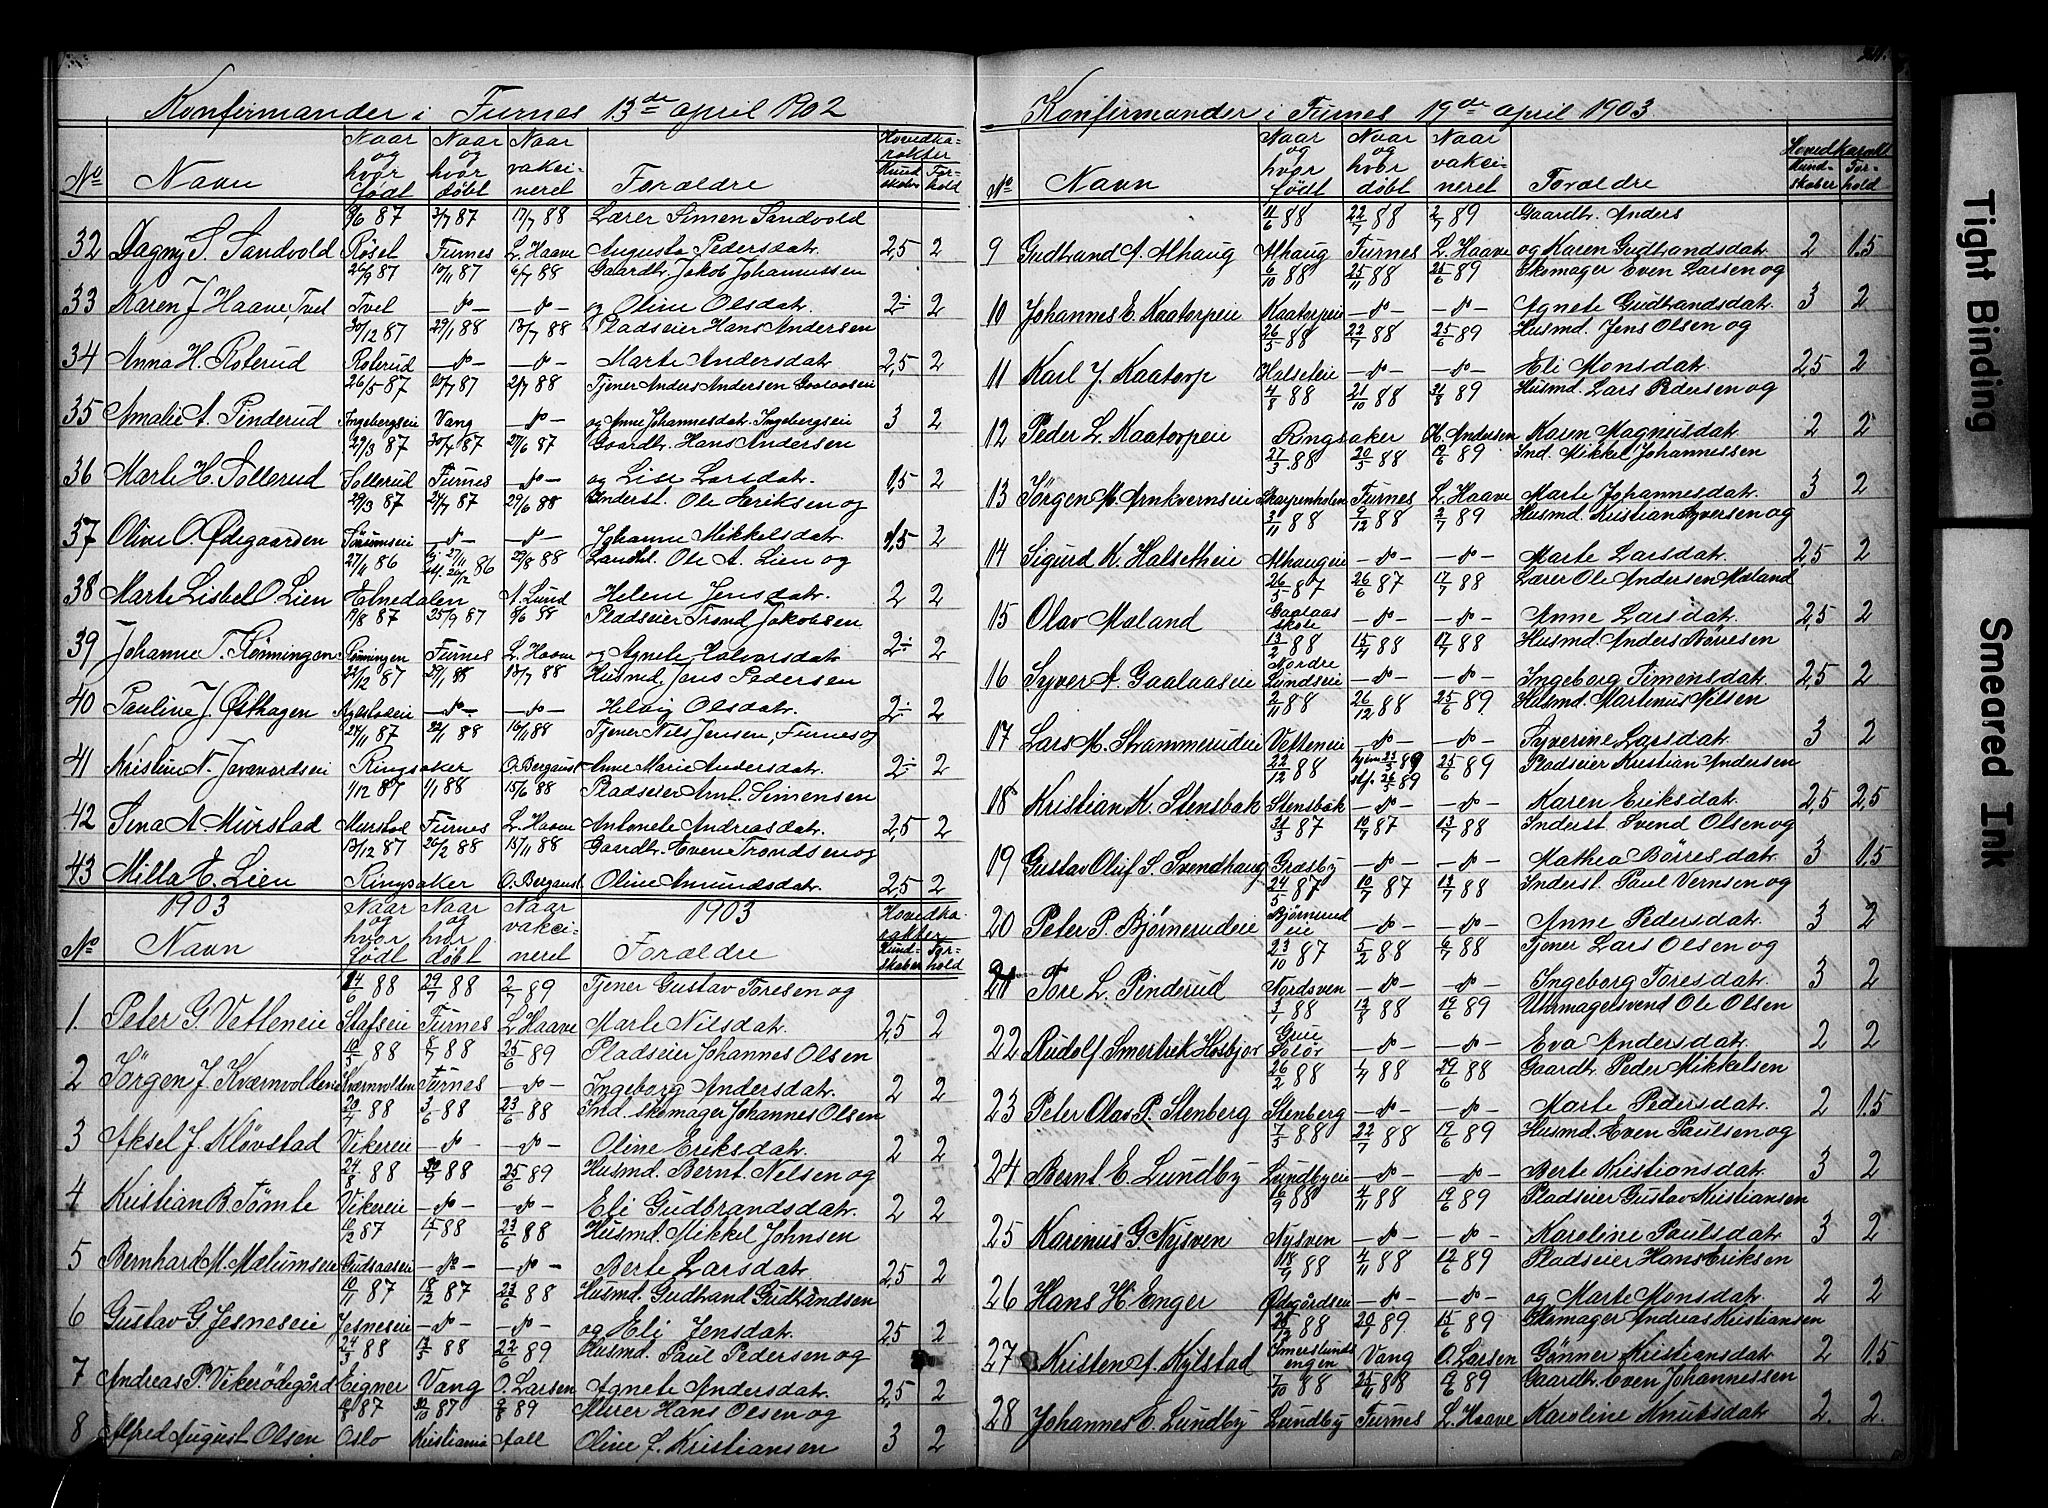 Konfirmander i Furnes 13de april 1902
No Navn Naar og hvor födt Naar og hvor döbt Naar vakcineret Forældre Hovedkarakter Kundskaber Forhold
/6 87 3/7 87 17/7 88 Lærer Simen Sandvold
32 Dagny S. Sandvold Røsel Furnes L. Haave Augusta Pedersdatr. 2,5 2
26/9 87 10/11 87 6/7 88 Gaardbr. Jakob Johannessen
33 Karen J. Haave, Tvet Tvet -"- -"- og Oline Olsdatr. 2÷ 2
30/12 87 29/1 88 13/7 88 Pladseier Hans Andersen
34 Anna H. Roterud Roterud -"- -"- Marte Andersdatr. 2,5 2
26/5 87 10/7 87 2/7 88 Tjener Anders Andersen Gaalaaseie
35 Amalie A. Pinderud Ingebergseie Vang -"- og Anne Johannesdatr. Ingebergseie 3 2
29/3 87 30/4 87 27/6 87 Gaardbr. Hans Andersen
36 Marte H. Sollerud Sollerud Furnes -"- og Lise Larsdatr. 1,5 2
29/3 87 24/7 87 29/6 88 Inderst. Ole Eriksen og
37 Oline O. Ødegaarden Sørumseie -"- -"- Johanne Mikkelsdatr. 1,5 2
27/4 86 27/11 26/12 86 29/8 88 Landhl. Ole A. Lien og
38 Marte Lisbet O. Lien Etnedalen A. Lund Helene Jensdatr. 2 2
19/8 87 25/9 87 8/6 88 Pladseier Trond Jakobsen
39 Johanne T. Rønningen Rønningen Furnes L. Haave og Agnete Halvorsdatr. 2÷ 2
22/12 87 29/1 88 13/7 88 Husmd. Jens Pedersen
40 Pauline J. Østhagen -"- -"- Helvig Olsdatr. 2÷ 2
24/11 87 22/1 88 16/11 88 Tjener Nils Jensen, Furnes og
41 Kristine N. Ringsaker O. Bergaust Anne Marie Andersdatr. 2÷ 2
1/12 87 1/1 88 15/6 88 Pladseier Arnt Simensen
42 Sena A. Murstad Murstad Furnes L. Haave Antonete Andreasdatr. 2,5 2
13/12 87 26/2 88 15/11 88 Gaardbr. Even Trondsen og
43 Milla E. Lien Ringsaker O. Bergaust Oline Amundsdatr. 2,5 2
1903 1903
No Navn Naar og hvor födt Naar og hvor döbt Naar vakcineret Forældre Hovedkarakter Kundskaber Forhold
14/6 88 29/7 88 2/7 89 Tjener Gustav Toresen og
1. Peter G. Vetteneie Stafseie Furnes L. Haave Marte Nilsdatr. 2,5 2
10/5 88 8/7 88 25/6 89 Pladseier Johannes Olsen
2 Jörgen J. Kværnvolden Kværnvolden Furnes -"- Ingeborg Andersdatr. 2 2
20/4 88 3/6 88 23/6 88 Ind. skomager Johannes Olsen
3 Aksel J. Kløvstad Vikereie -"- -"- Oline Eriksdatr. 2 2
24/8 88 88 25/6 89 Husmd. Bernt Nelsen og
4 Kristian B. Tömte Vikereie -"- -"- Eli Gudbrandsdatr. 2 2
10/12 87 15/ 88 23/6 88 Husmd. Mikkel Johnsen
5 Bernhard M. Mælumseie Gudsaaseie -"- -"- Berte Larsdatr. 2,5 2
10/11 87 18/12 87 23/6 88 Husmd. Gudbrand Gudbrandsen
6 Gustav G. Jesneseie Jesneseie -"- -"- og Eli Jensdatr. 2,5 2
24/3 88 13/5 88 22/6 89 Husmd. Paul Pedersen og
7 Andreas P. Vikerødegård Eigner Vang O. Larsen Agnete Andersdatr. 2,5 2
12/8 87 30/10 87 9/8 89 Murer Hans Olsen og
8 Alfred August Olsen Oslo Kristiania Aall Oline L. Kristiansen 3 2
Konfirmander i Furnes 19de april 1903.
No Navn Naar og hvor födt Naar og hvor döbt Naar vakcineret Forældre Hovedkarakt. Kundskaber Forhold
11/6 88 22/7 88 2/7 89 Gaardbr. Anders
9 Gudbrand A. Alhaug Alhaug Furnes L. Haave og Karen Gudbrandsdatr. 2 1.5
6/10 88 25/11 88 25/6 89 Skomager Even Larsen og
10 Johannes E. Kaatorpeie Kaatorpeie -"- -"- Agnete Gudbrandsdatr. 3 2
26/5 88 22/7 88 25/6 89 Husmd. Jens Olsen og
11 Karl J. Kaatorp Halseteie -"- -"- Eli Monsdatr. 2,5 2
4/8 88 21/10 88 21/8 89 Husmd. Lars Pedersen og
12 Peder L. Kaatorpeie Ringsaker H. Andersen Karen Magnusdatr. 2 2
27/3 88 20/5 88 19/6 89 Ind. Mikkel Johannessen
13 Jörgen M. Arnkvernseie Skarpenholen Furnes L. Haave Marte Johannesdatr. 3 2
3/11 88 9/12 88 2/7 89 Husmd. Kristian Syversen og
14 Sigurd K. Halsetheie Alhaugeie -"- -"- Marte Larsdatr. 2,5 2
26/5 87 26/6 87 17/7 88 Lærer Ole Andersen Mæland
15 Olav Mæland Gaalaas skole -"- -"- Anne Larsdatr. 2,5 2
13/2 88 15/4 88 17/7 88 Husmd. Anders Börresen
16 Syver A. Gaalaaseie Nordre Lundseie -"- -"- Ingeborg Simensdatr. 2,5 2
2/11 88 26/12 88 25/6 89 Husmd. Martinus Nilsen
17 Lars M. Strammerudeie Vetteneie -"- -"- Syverine Larsdatr. 3 2
22/12 88 hjem 23/3 89 stf. 26/5 89 25/6 89 Pladseier Kristian Andersen
18 Kristian K. Stensbak Stensbak -"- -"- Karen Eriksdatr. 2,5 2,5
31/3 87 10/7 87 13/7 88 Inderst. Svend Olsen og
19 Gustav Oluf S. Svendhaug Græsby -"- -"- Mathea Börresdatr. 3 1,5
24/5 87 10/7 87 13/7 88 Inderst. Paul Vernsen og
20 Peter P. Bjørnerudeie Bjørnerud eie -"- -"- Anne Pedersdatr. 3 2
23/10 87 5/2 88 6/7 88 Tjener Lars Olsen og
21 Tore L. Pinderud Nordsven -"- -"- Ingeborg Toresdatr. 3 2
3/7 88 12/8 88 19/6 89 Uhrmagersvend Ole Olsen
22 Rudolf Smerbek Høsbjor Grue Solör -"- -"- Eva Andersdatr. 2 2
26/2 88 1/4 88 29/6 88 Gaardbr. Peder Mikkelsen
23 Peter Olav P. Stenberg Stenberg -"- -"- Marte Pedersdatr. 2 1.5
7/5 88 22/7 88 19/6 89 Husmd. Even Paulsen og
24 Bernt E. Lundby Lundbyeie -"- -"- Berte Kristiansdatr. 3 2
16/9 88 4/11 88 19/6 89 Pladseier Gustav Kristiansen
25 Karinus G. Nysven Nysven -"- -"- Karoline Paulsdatr. 3 2
18/9 88 4/11 88 12/6 89 Pladseier Hans Eriksen
26 Hans H. Enger Ødegårdseie -"- -"- og Marte Monsdatr. 2 2
88 20/1 89 15/6 89 Skomager Andreas Kristiansen
27 Kristen A. Kylstad Imerslunds engen Vang O. Larsen Gönner Kristiansdatr. 2 1.5
7/10 88 25/11 88 19/6 89 Gaardbr. Even Johannessen
28 Johannes E. Lundby Lundby Furnes L. Haave Karoline Knutsdatr. 2. 2.
Tight Binding
Smeared Ink